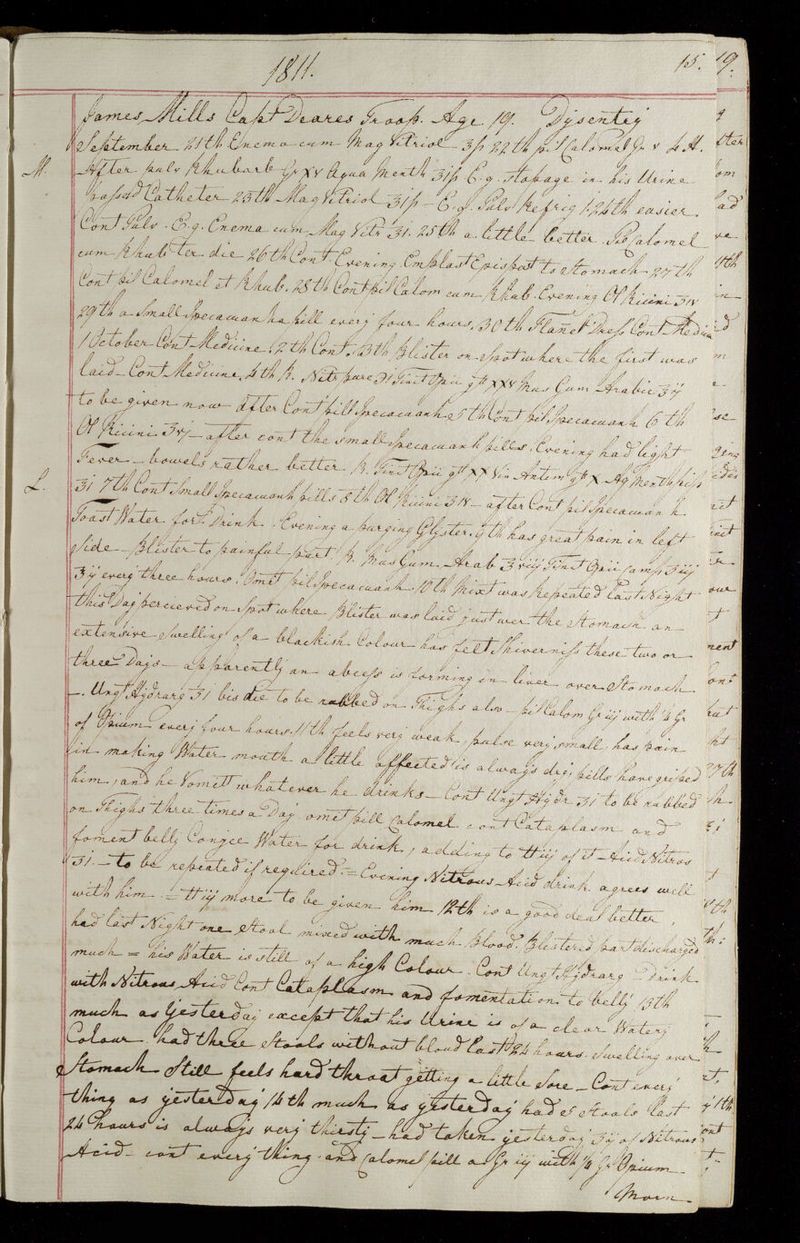 1811.
15.
19.
James Mills Capt Deares Troop. Age 19. Dysentry
September 21th Enema cum Mag Vitriol ʒβ 22th pil Calomel Gr v d. H.
M. After pulv Rhubarb Gr xv Aqua Menth ʒiβ E. g. stopage in his Urine
passed Catheter 23th Mag Vitriol ʒiβ - E. g. Pulv Refrig 1. 24th easier.
Cont Pulv. E. g. Enema cum Mag Vitr ʒi. 25th a little better. Pil Calomel
cum Rhub ter die 26th Cont Evening Emplast Epispast to Stomach - 27th
Cont pil Calomel et Rhub. 28th Cont pil Calom cum Rhub. Evening Ol Ricini ʒiv
29th a Small Ipecacuanha pill every four hours. 30th Flanel Dress Cont Medicin
1 October Cont Medicine. 2th Cont. 3th Blister on Spot where the first was
laid - Cont Medicine. 4th R. Nitr pure ʒi Tinct Opii gtt xxv Mus Gum Arabic ʒij
to be given now after Cont pill Ipecacuanh 5th Cont pil Ipecacuanh 6th
Ol Ricini ʒvj - after cont the small Ipecacuanh pills. Evening had light
Fever - bowels rather better R. Tinct Opii gtt xx Vin Antem gtt x Aq Menth piss
L. ʒi 7th Cont Small Ipecacuanh pills 8th Ol Ricini ʒiv - after Cont pil Ipecacuanh.
Toast Water for Drink. Evening a purging Glyster. 9th has great pain in left
side - Blister to painful part R. Mus Gum. Arab ʒviij Tinct Opii Camp ʒiij
ʒij every three hours. Omet pil Ipecacuanh 10th Mixt was Repeated last Night
this Day percieved on Spot where Blister was laid just over the Stomach an
extensive Swelling of a blackish Colour has felt Shiverniss these two or
three Days - apparently an abcess is forming in liver over Stomach
-. Ungt Hydrarg ʒi bis die to be rubbed on Thighs also - pil Calom Gr iij with ¼ Gr
of Opium every four hours. 11th feels very weak, pulse very small, has pain
in making Water mouth a little affected is always dry, pills have griped
him, and he Vomitt whatever he drinks - Cont Ungt Hydr ʒi to be rubbed
on Thighs three times a Day omet pill Calomel cont Cataplasm and
foment belly Congee Water for drink, adding to ℔iij of it - Acid Nitros
ʒi. - to be repeated if required = Evening Nitrous Acid drink agrees well
with him = ℔ij more to be given him 12th is a good deal better,
had last Night one Stool mixed with much Blood. Blistered part discharged
much = his Water is still of a high Colour. Cont Ungt Hydrarg Drink
with Nitrous Acid Cont Cataplasm and fomentation to belly 13th
much as yesterday except that his Urine is of a clear Watery
Colour. had three Stools without bloud last 24 hours. Swelling over
Stomach still feels hard throat getting a little Sore - Cont every
thing as yesterday 14th much as yesterday had 5 stools last
24 hours is always very thirsty - had taken yesterday ʒij of Nitrous
Acid - cont every thing. and Calomel pill a Gr iij with ¼ Gr Opium
Morn